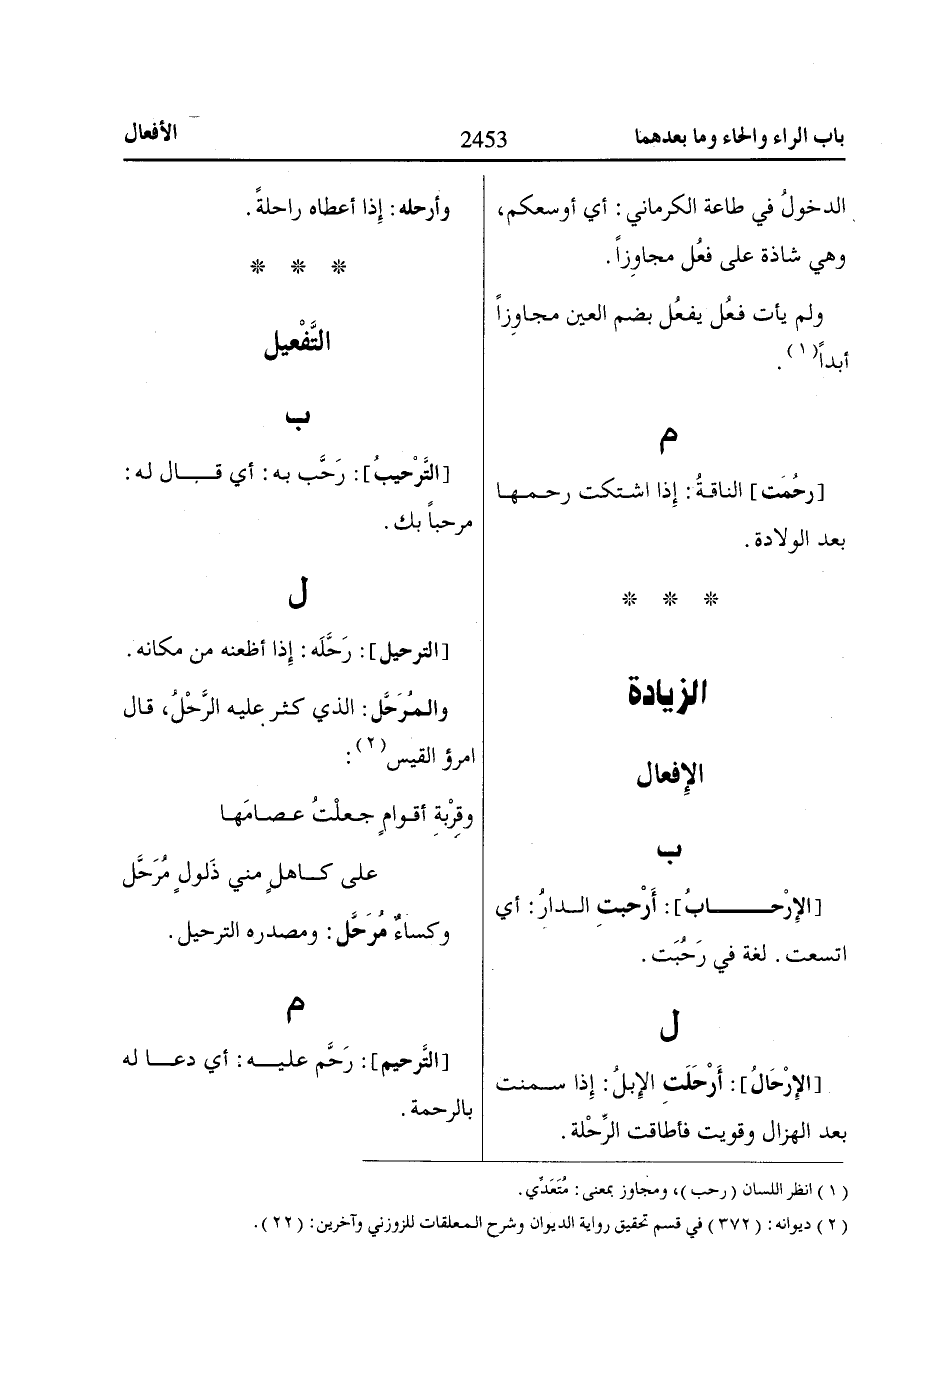 باب الراء والحاء وما بعدهما 2453 الأفعال
الدخولُ في طاعة الكرماني : أي أوسعكم،
وهي شاذة على فعُل مجاوِزاً .
ولم يأت فعُل يفعُل بضم العين مجاوِزاً
أبداً(١) .
م
[رحُمَت] الناقةُ : إِذا اشتكت رحمها
بعد الولادة .
* * *
الزيادة
الإِفعال
ب
[الإِرْحــابُ] : أَرْحبتِ الدارُ : أي
اتسعت . لغة في رَحُبَت .
ل
[الإِرْحَالُ] : أَرْحَلَتِ الإِبلُ : إِذا سمنت
بعد الهزال وقويت فأطاقت الرِّحْلة .
وأرحله : إِذا أعطاه راحلةً .
* * *
التَّفْعيل
ب
[التَّرْحيبُ] : رَحَّب به : أي قــال له :
مرحباً بك .
ل
[الترحيل] : رَحَّلَه : إِذا أظعنه من مكانه .
والمُرَحَّل : الذي كثر عليه الرَّحْلُ، قال
امرؤ القيس(٢) :
وقِرْبةِ أقوامٍ جعلْتُ عصامَها
على كاهلٍ مني ذَلولٍ مُرَحَّل
وكساءٌ مُرَحَّل : ومصدره الترحيل .
م
[التَّرحيم] : رَحَّم عليــه : أي دعــا له
بالرحمة .
(١) انظر اللسان (رحب)، ومجاوز بمعنى : مُتَعَدِّي .
(٢) ديوانه : (٣٧٢) في قسم تحقيق رواية الديوان وشرح المعلقات للزوزني وآخرين : (٢٢) .